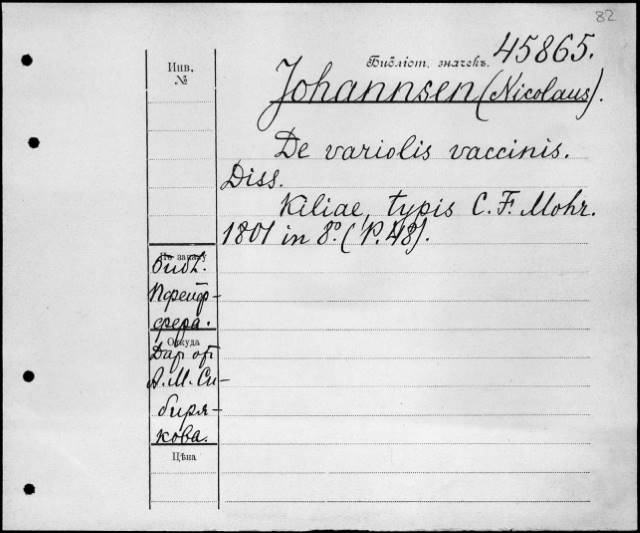 82
Инв.
№
Библіот. значекъ. 45865.
Johannsen (Nicolaus).
De variolis vaccinis.
Diss.
Kiliae, typis C. F. Mohr.
1801 in 8º. (P. 48).
По заказу
Библ.
Пфейф-
фера.
Откуда
Даръ отъ
А. М. Си-
биря-
кова.
Цѣна